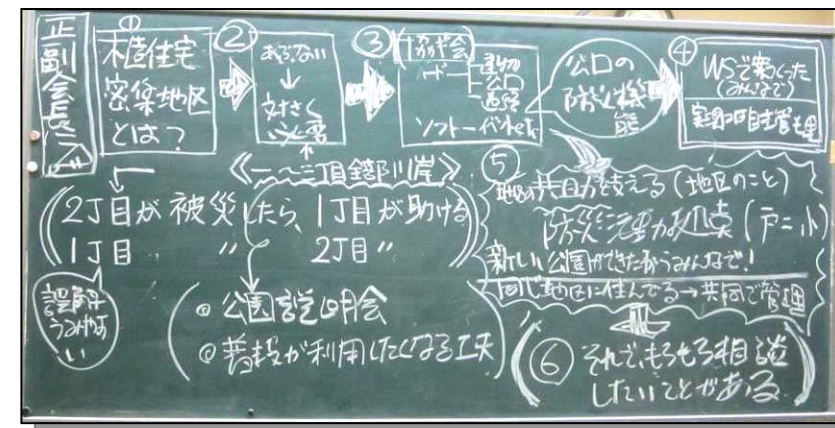 正副会長さんへ
①
木造住宅
密集地区
とは？
②
あぶない
↓
対さく
必要
③
協ギ会
ハード
建物
公口
道路
ソフト
公口の
防災機
能
④
WSで案つくった
(みんなで)
《一〜三丁目全部川岸》
2丁目が被災したら、1丁目が助ける
1丁目 〃 〃 2丁目〃
誤解
うみやす
い
◎公園説明会
◎普段が利用したくなる工夫
⑤
(地区のこと)
新しい公園ができたからみんなで!
同じ地区に住んでる→共同で管理
⑥
それで、もろもろ相談
したいことがある